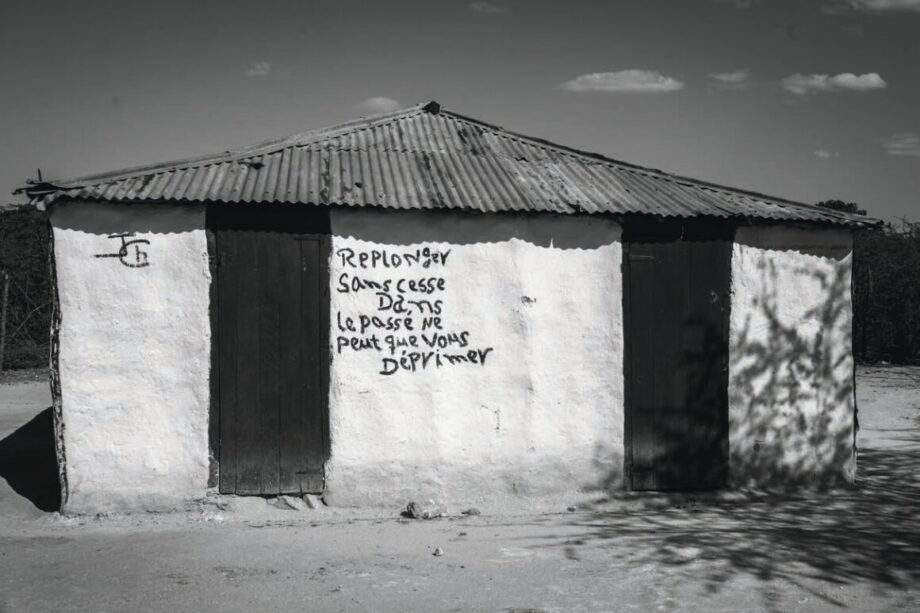 Replonger
Sans cesse
Dans
le passé ne
peut que vous
Déprimer